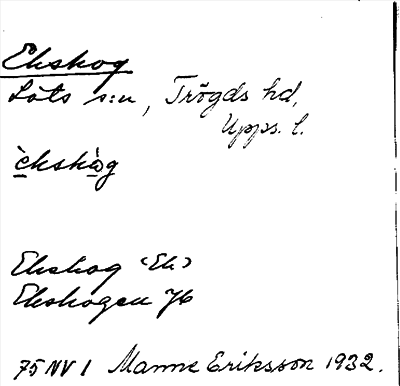 Ekskog
Löts s:n, Trögds hd,
Upps. l.
èkskòg
Ekskog (Ek)
Ekskogen Jk
75 NV 1 Manne Eriksson 1932.